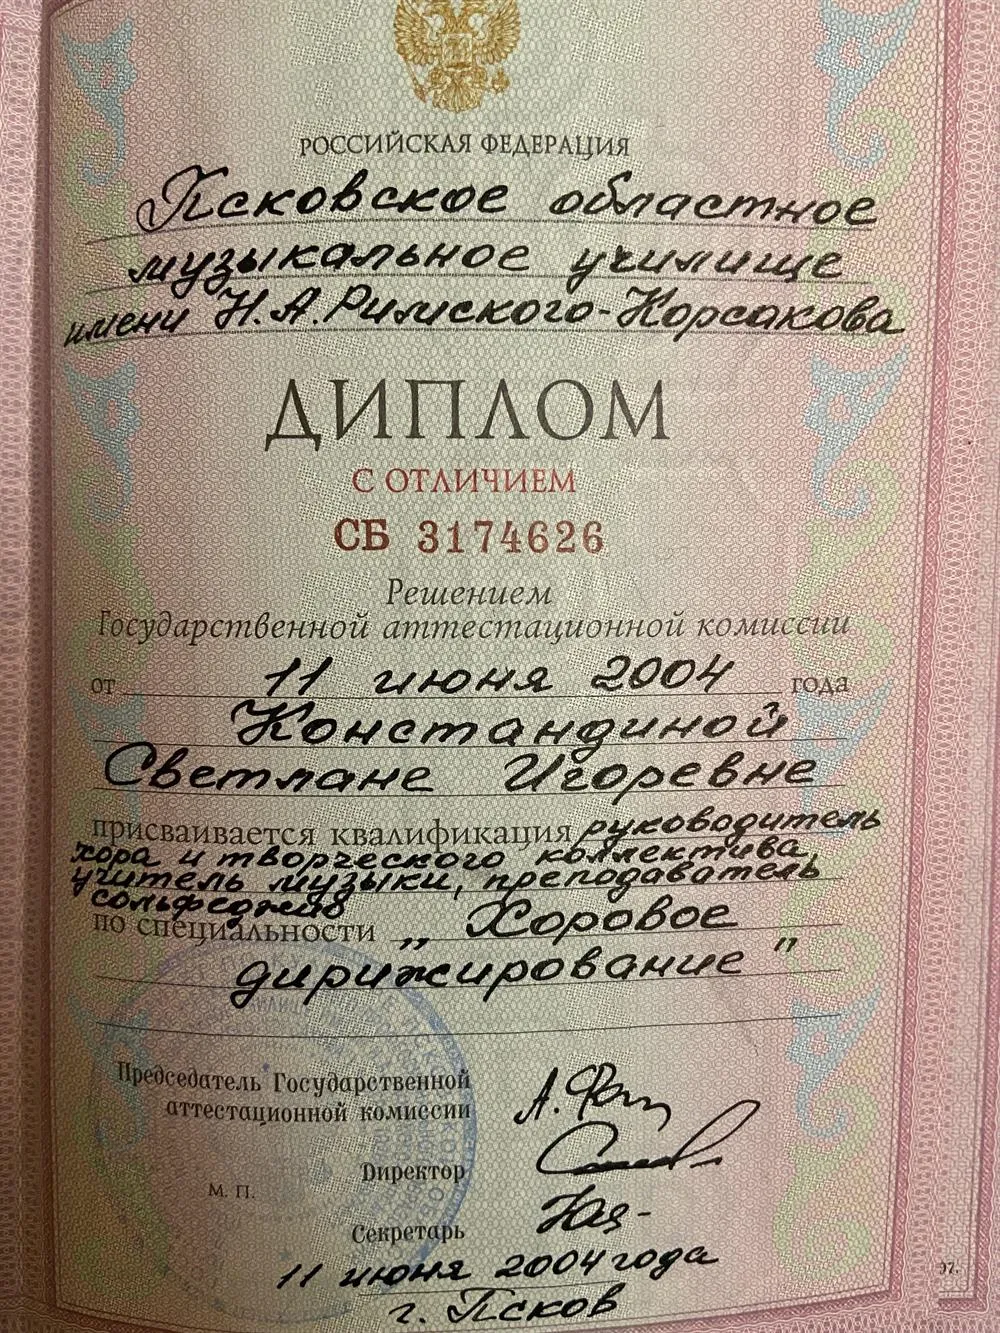 РОССИЙСКАЯ ФЕДЕРАЦИЯ
Псковское областное
музыкальное училище
имени Н.А.Римского-Корсакова
ДИПЛОМ
С ОТЛИЧИЕМ
СБ 3174626
Решением
Государственной аттестационной комиссии
от 11 июня 2004 года
Констандиной
Светлане Игоревне
присваивается квалификация руководитель
хора и творческого коллектива,
учитель музыки, преподаватель
сольфеджио
по специальности „ Хоровое
дирижирование "
Председатель Государственной
аттестационной комиссии
Директор
М. П.
Секретарь
11 июня 2004 года
г. Псков